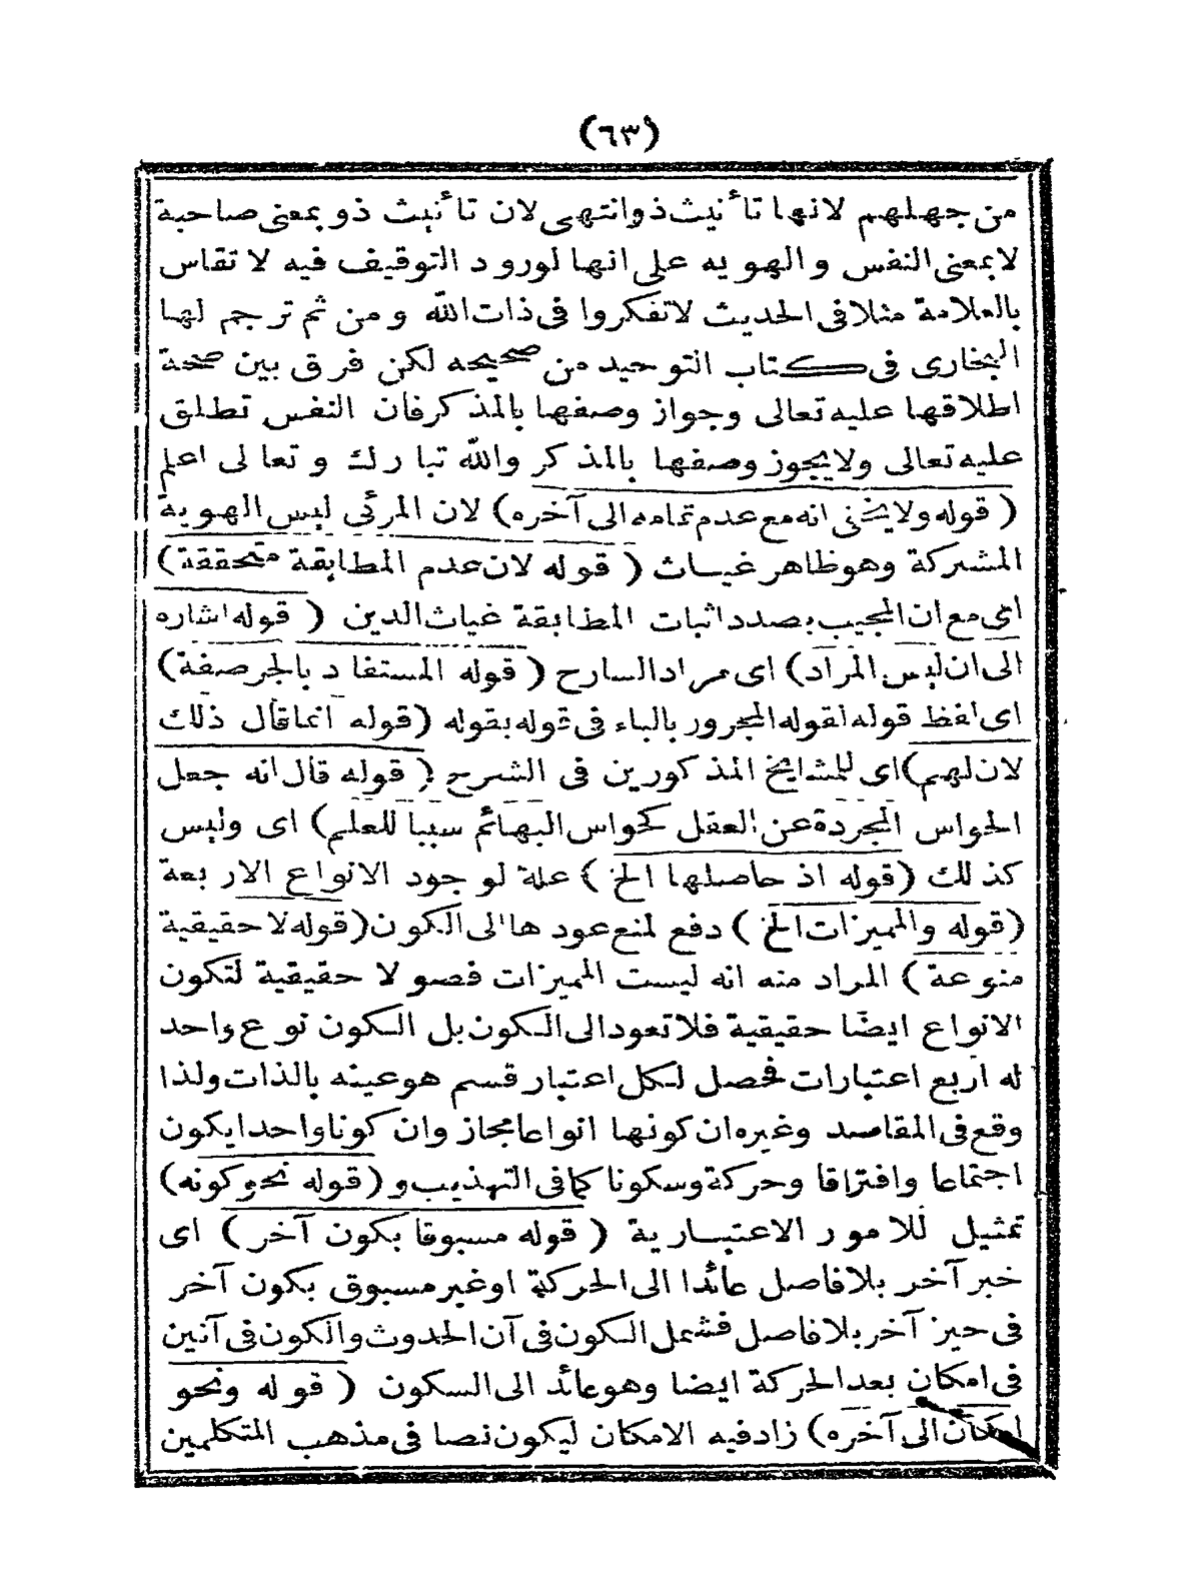 (٦٣)
من جهلهم لانها تأنيث ذوانتهى لان تأنيث ذو بمعنى صاحبة
لا بمعنى النفس والهويه على انها لورود التوقيف فيه لا تقاس
بالعلامة مثلا فى الحديث لا تفكروا فى ذات الله ومن ثم ترجم لها
البخارى فى كتاب التوحيد من صحيحه لكن فرق بين صحة
اطلاقها عليه تعالى وجواز وصفها بالمذكر فان النفس تطلق
عليه تعالى ولا يجوز وصفها بالمذكر والله تبارك وتعالى اعلم
(قوله ولا يخفى انه مع عدم تمامه الى آخره) لان المرئى ليس الهوية
المشتركة وهو ظاهر غياث (قوله لان عدم المطابقة متحققة)
اى مع ان المجيب بصدد اثبات المطابقة غياث الدين (قوله اشاره
الى ان ليس المراد) اى مراد السارح (قوله المستفاد بالجر صفة)
اى لفظ قوله لقوله المجرور بالباء فى قوله بقوله (قوله انما قال ذلك
لان لهم) اى للمشايخ المذكورين فى الشرح (قوله قال انه جعل
الحواس المجردة عن العقل كحواس البهائم سببا للعلم) اى وليس
كذلك (قوله اذ حاصلها الخ) علة لوجود الانواع الاربعة
(قوله والمميزات الخ) دفع لمنع عودها الى الكون (قوله لا حقيقية
منوعة) المراد منه انه ليست المميزات فصولا حقيقية لتكون
الانواع ايضا حقيقية فلا تعود الى الكون بل الكون نوع واحد
له اربع اعتبارات فحصل لكل اعتبار قسم هو عينه بالذات ولذا
وقع فى المقاصد وغيره ان كونها انواعا مجاز وان كونا واحدا يكون
اجتماعا وافتراقا وحركة وسكونا كما فى التهذيب و (قوله نحو كونه)
تمثيل للامور الاعتبارية (قوله مسبوقا بكون آخر) اى
خبر آخر بلا فاصل عائدا الى الحركة او غير مسبوق بكون آخر
فى حيز آخر بلا فاصل فشمل السكون فى آن الحدوث والكون فى آنين
فى امكان بعد الحركة ايضا وهو عائد الى السكون (قوله ونحو
امكان الى آخره) زاد فيه الامكان ليكون نصا فى مذهب المتكلمين